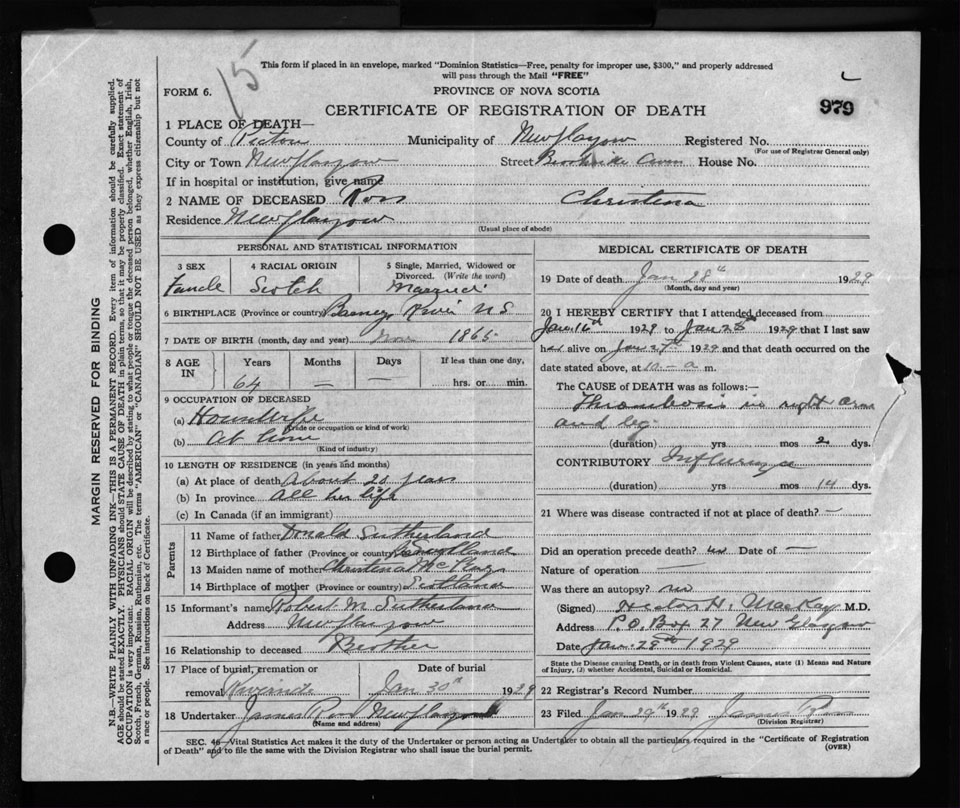 15
This form if placed in an envelope, marked "Dominion Statistics—Free, penalty for improper use, $300," and properly addressed
will pass through the Mail "FREE"
FORM 6.
PROVINCE OF NOVA SCOTIA
CERTIFICATE OF REGISTRATION OF DEATH
979
MARGIN RESERVED FOR BINDING
N.B.—WRITE PLAINLY WITH UNFADING INK—THIS IS A PERMANENT RECORD. Every item of information should be carefully supplied.
AGE should be stated EXACTLY. PHYSICIANS should STATE CAUSE OF DEATH in plain terms, so that it may be properly classified. Exact statement of
OCCUPATION is very important. RACIAL ORIGIN will be described by stating to what people or tongue the deceased person belonged, whether English, Irish,
Scotch, French, German, Russian, Ruthenian, etc. The terms "AMERICAN" or "CANADIAN" SHOULD NOT BE USED as they express citizenship but not
a race or people. See instructions on back of Certificate.
1 PLACE OF DEATH—
County of Pictou Municipality of New Glasgow Registered No.
(For use of Registrar General only)
City or Town New Glasgow Street House No.
If in hospital or institution, give name
2 NAME OF DECEASED Ross Christena
Residence New Glasgow
(Usual place of abode)
PERSONAL AND STATISTICAL INFORMATION
3 SEX 4 RACIAL ORIGIN 5 Single, Married, Widowed or
Divorced. (Write the word)
Female Scotch Married
6 BIRTHPLACE (Province or country) Barneys River N S
7 DATE OF BIRTH (month, day and year) 1865
8 AGE IN Years Months Days If less than one day,
64 — — hrs. or min.
9 OCCUPATION OF DECEASED
(a) Housewife
(Trade or occupation or kind of work)
(b) At home
(Kind of industry)
10 LENGTH OF RESIDENCE (in years and months)
(a) At place of death About 20 years
(b) In province all her life
(c) In Canada (if an immigrant)
Parents
11 Name of father Donald Sutherland
12 Birthplace of father (Province or country) Scotland
13 Maiden name of mother Christena McKay
14 Birthplace of mother (Province or country) Scotland
15 Informant's name Robert M Sutherland
Address New Glasgow
16 Relationship to deceased Brother
17 Place of burial, cremation or Date of burial
removal Riverside Jan 30th 1929
18 Undertaker James Ross New Glasgow
(Name and address)
MEDICAL CERTIFICATE OF DEATH
19 Date of death Jan 28th 1929
(Month, day and year)
20 I HEREBY CERTIFY that I attended deceased from
Jan 16th 1929 to Jan 28th 1929 that I last saw
her alive on Jan 27th 1929 and that death occurred on the
date stated above, at 10 - a m.
The CAUSE OF DEATH was as follows:—
Thrombosis in right arm
and leg
(duration) yrs mos 2 dys.
CONTRIBUTORY Influenza
(duration) yrs mos 14 dys.
21 Where was disease contracted if not at place of death? —
Did an operation precede death? no Date of —
Nature of operation —
Was there an autopsy? no
(Signed) Hector H. MacKay M.D.
Address P.O. Box 27 New Glasgow
Date Jan. 28th 1929
State the Disease causing Death, or in death from Violent Causes, state (1) Means and Nature
of Injury, (2) whether Accidental, Suicidal or Homicidal.
22 Registrar's Record Number
23 Filed Jan 29th 1929 James Ross
(Division Registrar)
SEC. 46—Vital Statistics Act makes it the duty of the Undertaker or person acting as Undertaker to obtain all the particulars required in the "Certificate of Registration
of Death" and to file the same with the Division Registrar who shall issue the burial permit.
(OVER)